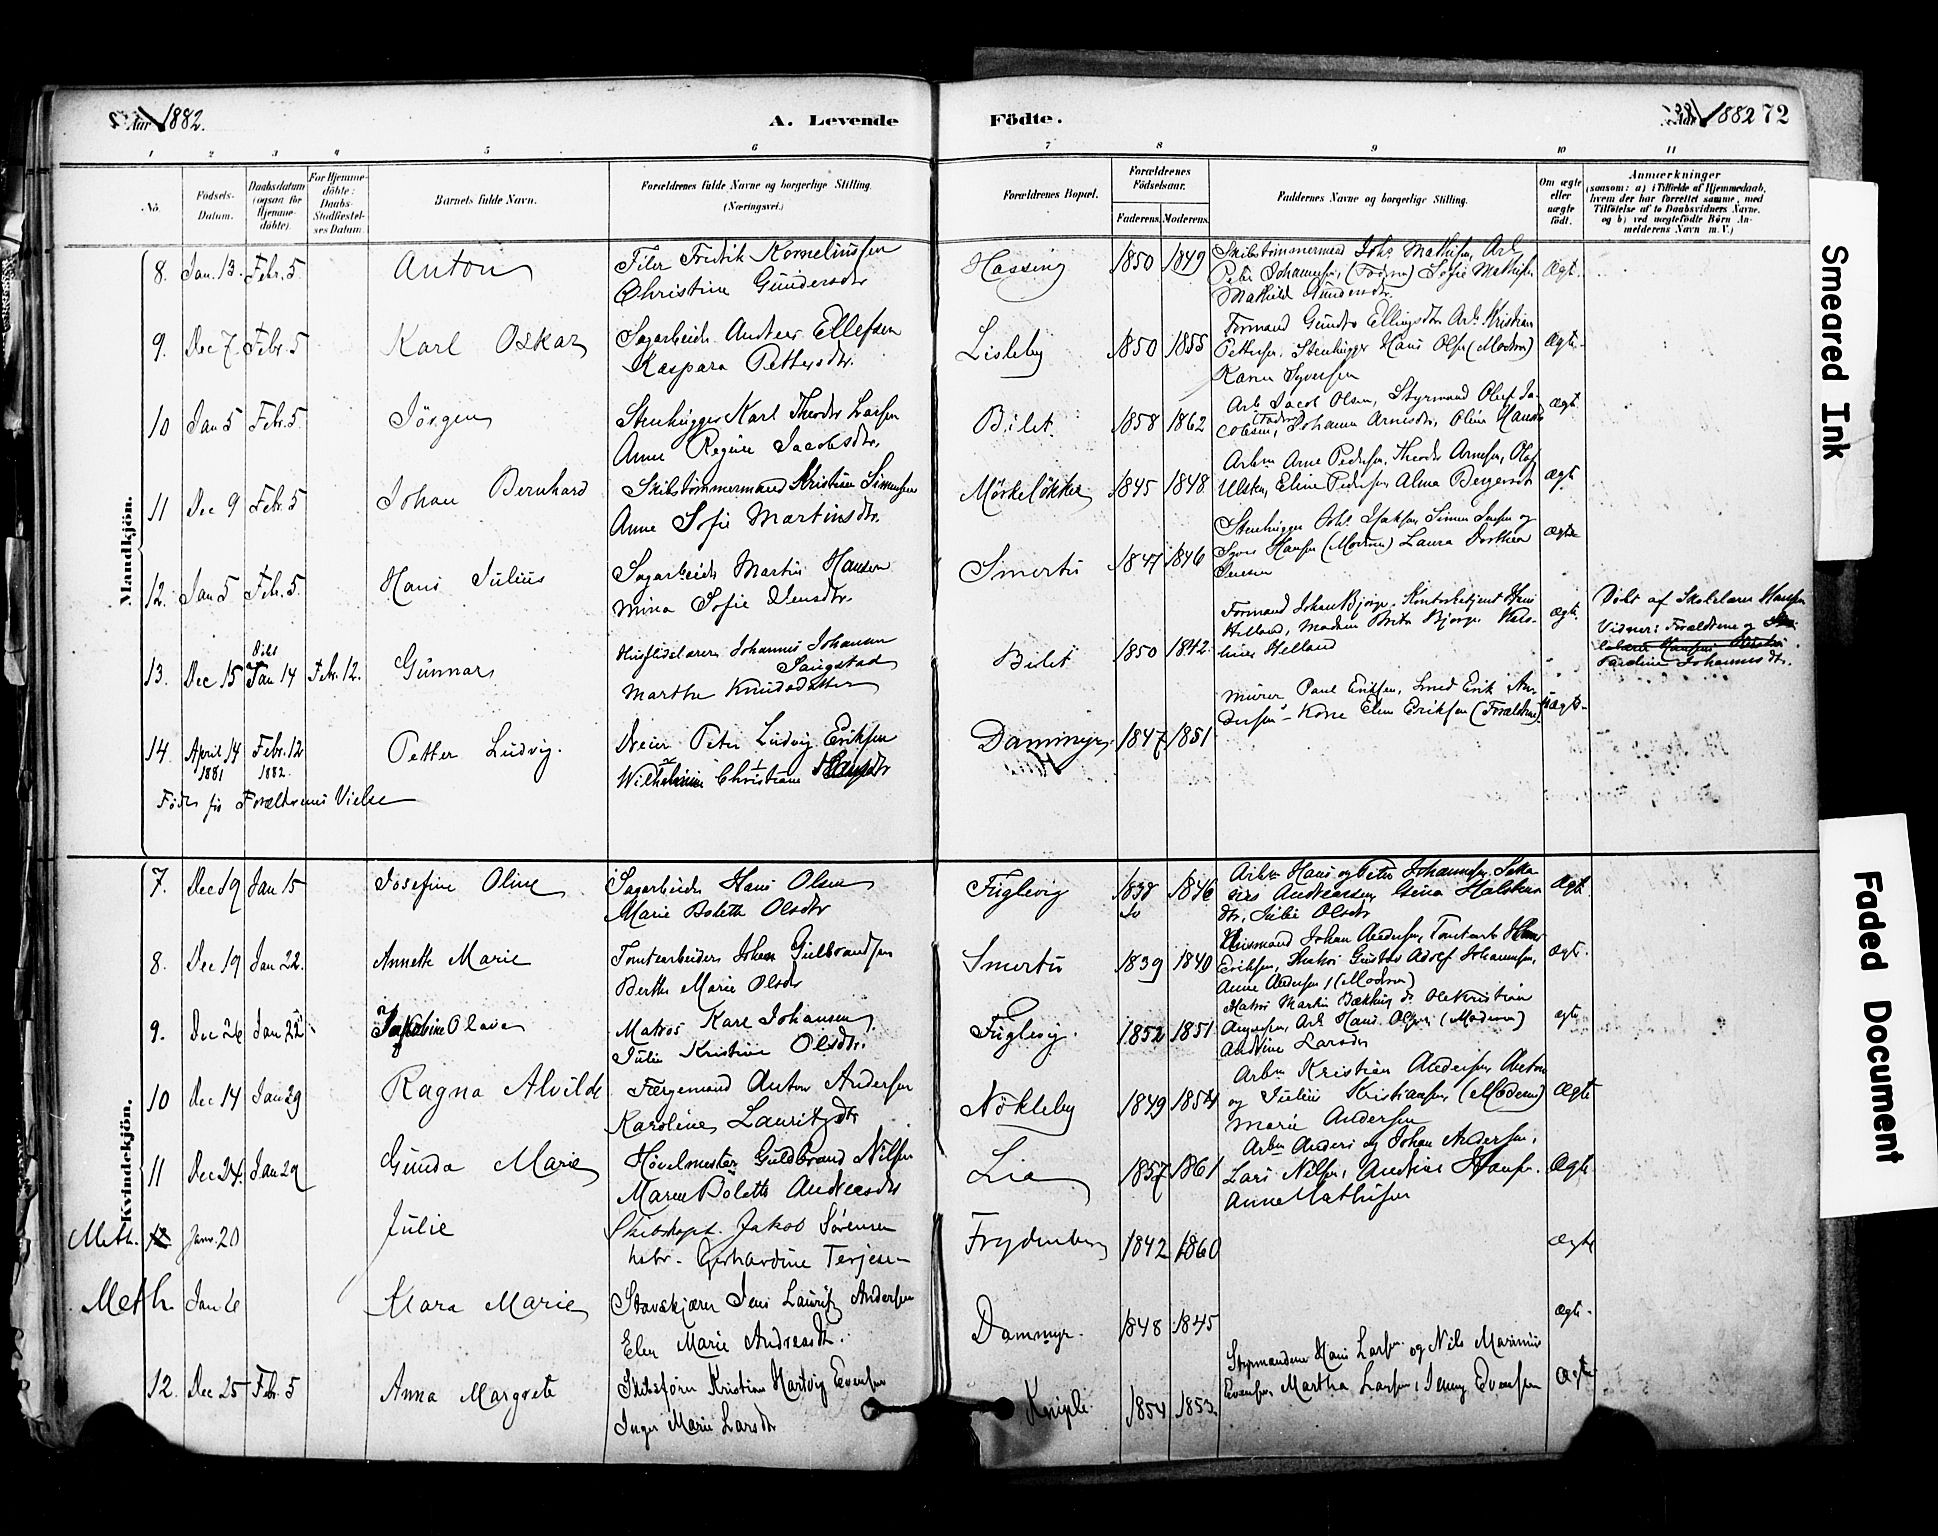 Aar 1882.
A. Levende
Födte.
1882 72
1 2 3 4 5 6 7 8 9 10 11
No.
Fødsels-Datum.
Daabsdatum (ogsaa for Hjemmedöbte).
For Hjemmedöbte: Daabs-Stadfæstelses Datum.
Barnets fulde Navn.
Forældrenes fulde Navne og borgerlige Stilling. (Næringsvei.)
Forældrenes Bopæl.
Forældrenes Födselsaar.
Faderens. Moderens.
Faddernes Navne og borgerlige Stilling.
Om ægte eller uægte födt.
Anmærkninger
(saasom: a) i Tilfælde af Hjemmedaab,
hvem der har forrettet samme, med
Tilföielse af to Daabsvidners Navne.
og b) ved uægtefödte Börn An-
melderens Navn m. V.)
Mandkjön.
8. Jan. 13. Febr. 5 Anton
Filer Fredrik Kornelius­sen
Christine Gundersdtr
Hassing 1850 1849
Skibstømmermand Johs Mathisen, Arb
Peter Johannesen, (Faderen) Sofie Mathisen
Mathild Gundersdtr.
Ægte.
9. Dec 7. Febr. 5 Karl Oskar
Sagarbeider Anders Ellefsen
Kaspara Pettersdtr.
Lisleby 1850 1855
Formand Ellingsdtr Arb. Kristian
Pettersen, Stenhugger Hans Olsen (Moderen)
Karen Syversen
Ægte
10 Jan 5 Febr. 5 Jörgen
Stenhugger Karl Theodor Larsen
Anne Regine Jacobsdtr.
Bilet. 1858 1862
Arb Jacob Olsen, Styrmand Oluf Ja-
cobsen, (Faderen) Johanne Arnesdtr, Oline Hansdtr
Ægte
11 Dec 9 Febr. 5 Johan Bernhard
Skibstømmermand Kristian Simensen
Anne Sofie Martinsdtr.
Mørkeløkken 1845 1848
Arbm Arne Pedersen, Theodor Arnesen, Olaf
Eline Pedersen, Alma Bergersdt
Ægte
12. Jan 5 Febr. 5. Hans Julius
Sagarbeider Martin Hansen
Mina Sofie Jensdtr.
Smertu 1847 1846
Stenhugger Johs Isaksen, Simen Jensen og
Syver Hansen (Moderen) Laura Dorthea
Jensen
Ægte
13. Dec 15 Døbt Jan 14 Febr. 12. Gunnar
Husflidslærer Johannes Johansen
Sangstad
Marthe Knudsdatter
Bilet 1850 1842
Formand Johan Bjorge. Kontorbetjent
Helland, Madam Brita Bjorge
Helland
Ægte
Døbt af Skolelærer Hansen
Vidner: Forældrene og
Pauline Johannesdtr.
14. April 14 1881 Febr. 12 1882. Petter Ludvig.
Dreier Peter Ludvig Eriksen
Wilhelmine Christiane Hansdtr
Dammyr. 1847 1851
Murer Paul Eriksen, Smed Erik An-
dersen - Kone Elen Eriksen (Forældrene)
Ægte
Født før Forældrenes Vielse
Kvindekjön.
7. Dec 19 Jan 15 Josefine Oline
Sagarbeider Hans Olsen
Marie Bolette Olsdtr
Fuglevig 1838 1846
Arbm Hans og Peter Johannesen,
Andreassen, Gina Halvorsen
dtr, Julie Olsdtr
Ægte
8. Dec 19 Jan 22. Annette Marie
Tomtearbeider Johan Gulbrandsen
Berthe Marie Olsdtr
Smertu 1839 1840
Huismand Johan Andersen, Tomtearb Hans
Eriksen, Matros Gustav Adolf Johannesen,
Anne Andersen, (Moderen)
Ægte.
9. Dec 26 Jan 22 Jakobine Olava
Matros Karl Johansen,
Julie Kristine Olsdtr.
Fuglevig. 1852 1851
Matros Martin Bækking, do Ole Kristian
Augensen, Arb. Hans Olsen (Moderen)
Andrine Larsdtr
ægte
10 Dec 14 Jan 29 Ragna Alvilde
Færgemand Anton Andersen
Karoline Lauritzdtr
Nökleby 1849 1854
Arbm Kristian Andersen, Anton
og Julie Kristiansen, (Moderen)
Marie Andersen
Ægte
11 Dec 24. Jan 29 Gunda Marie
Høvelmester Guldbrand Nilsen
Maren Bolette Andersdtr
Lie 1857 1861
Arbm Anders og Johan Andersen,
Lars Nilsen, Andrine Hansen.
Anne Mathisen
Ægte
Meth. 12 Janr. 20 Julie
Skibskapt. Jakob Sörensen
hstr. Gerhardine Terjesen
Frydenberg 1842 1860
Ægte
Meth. Jan 26 Klara Marie
Stavskjærer Jens Lauritz Andersen
Elen Marie Andreasdtr.
Dammyr. 1848 1845
Ægte.
12. Dec 25 Febr. 5 Anna Margrete
Skibsfører Kristian Hartvig Evensen
Inger Marie Larsdtr
Kniple 1854 1853.
Styrmændene Hans Larsen og Nils Marinius
Evensen, Martha Larsen, Jenny Evensen
Ægte
Smeared Ink
Faded Document